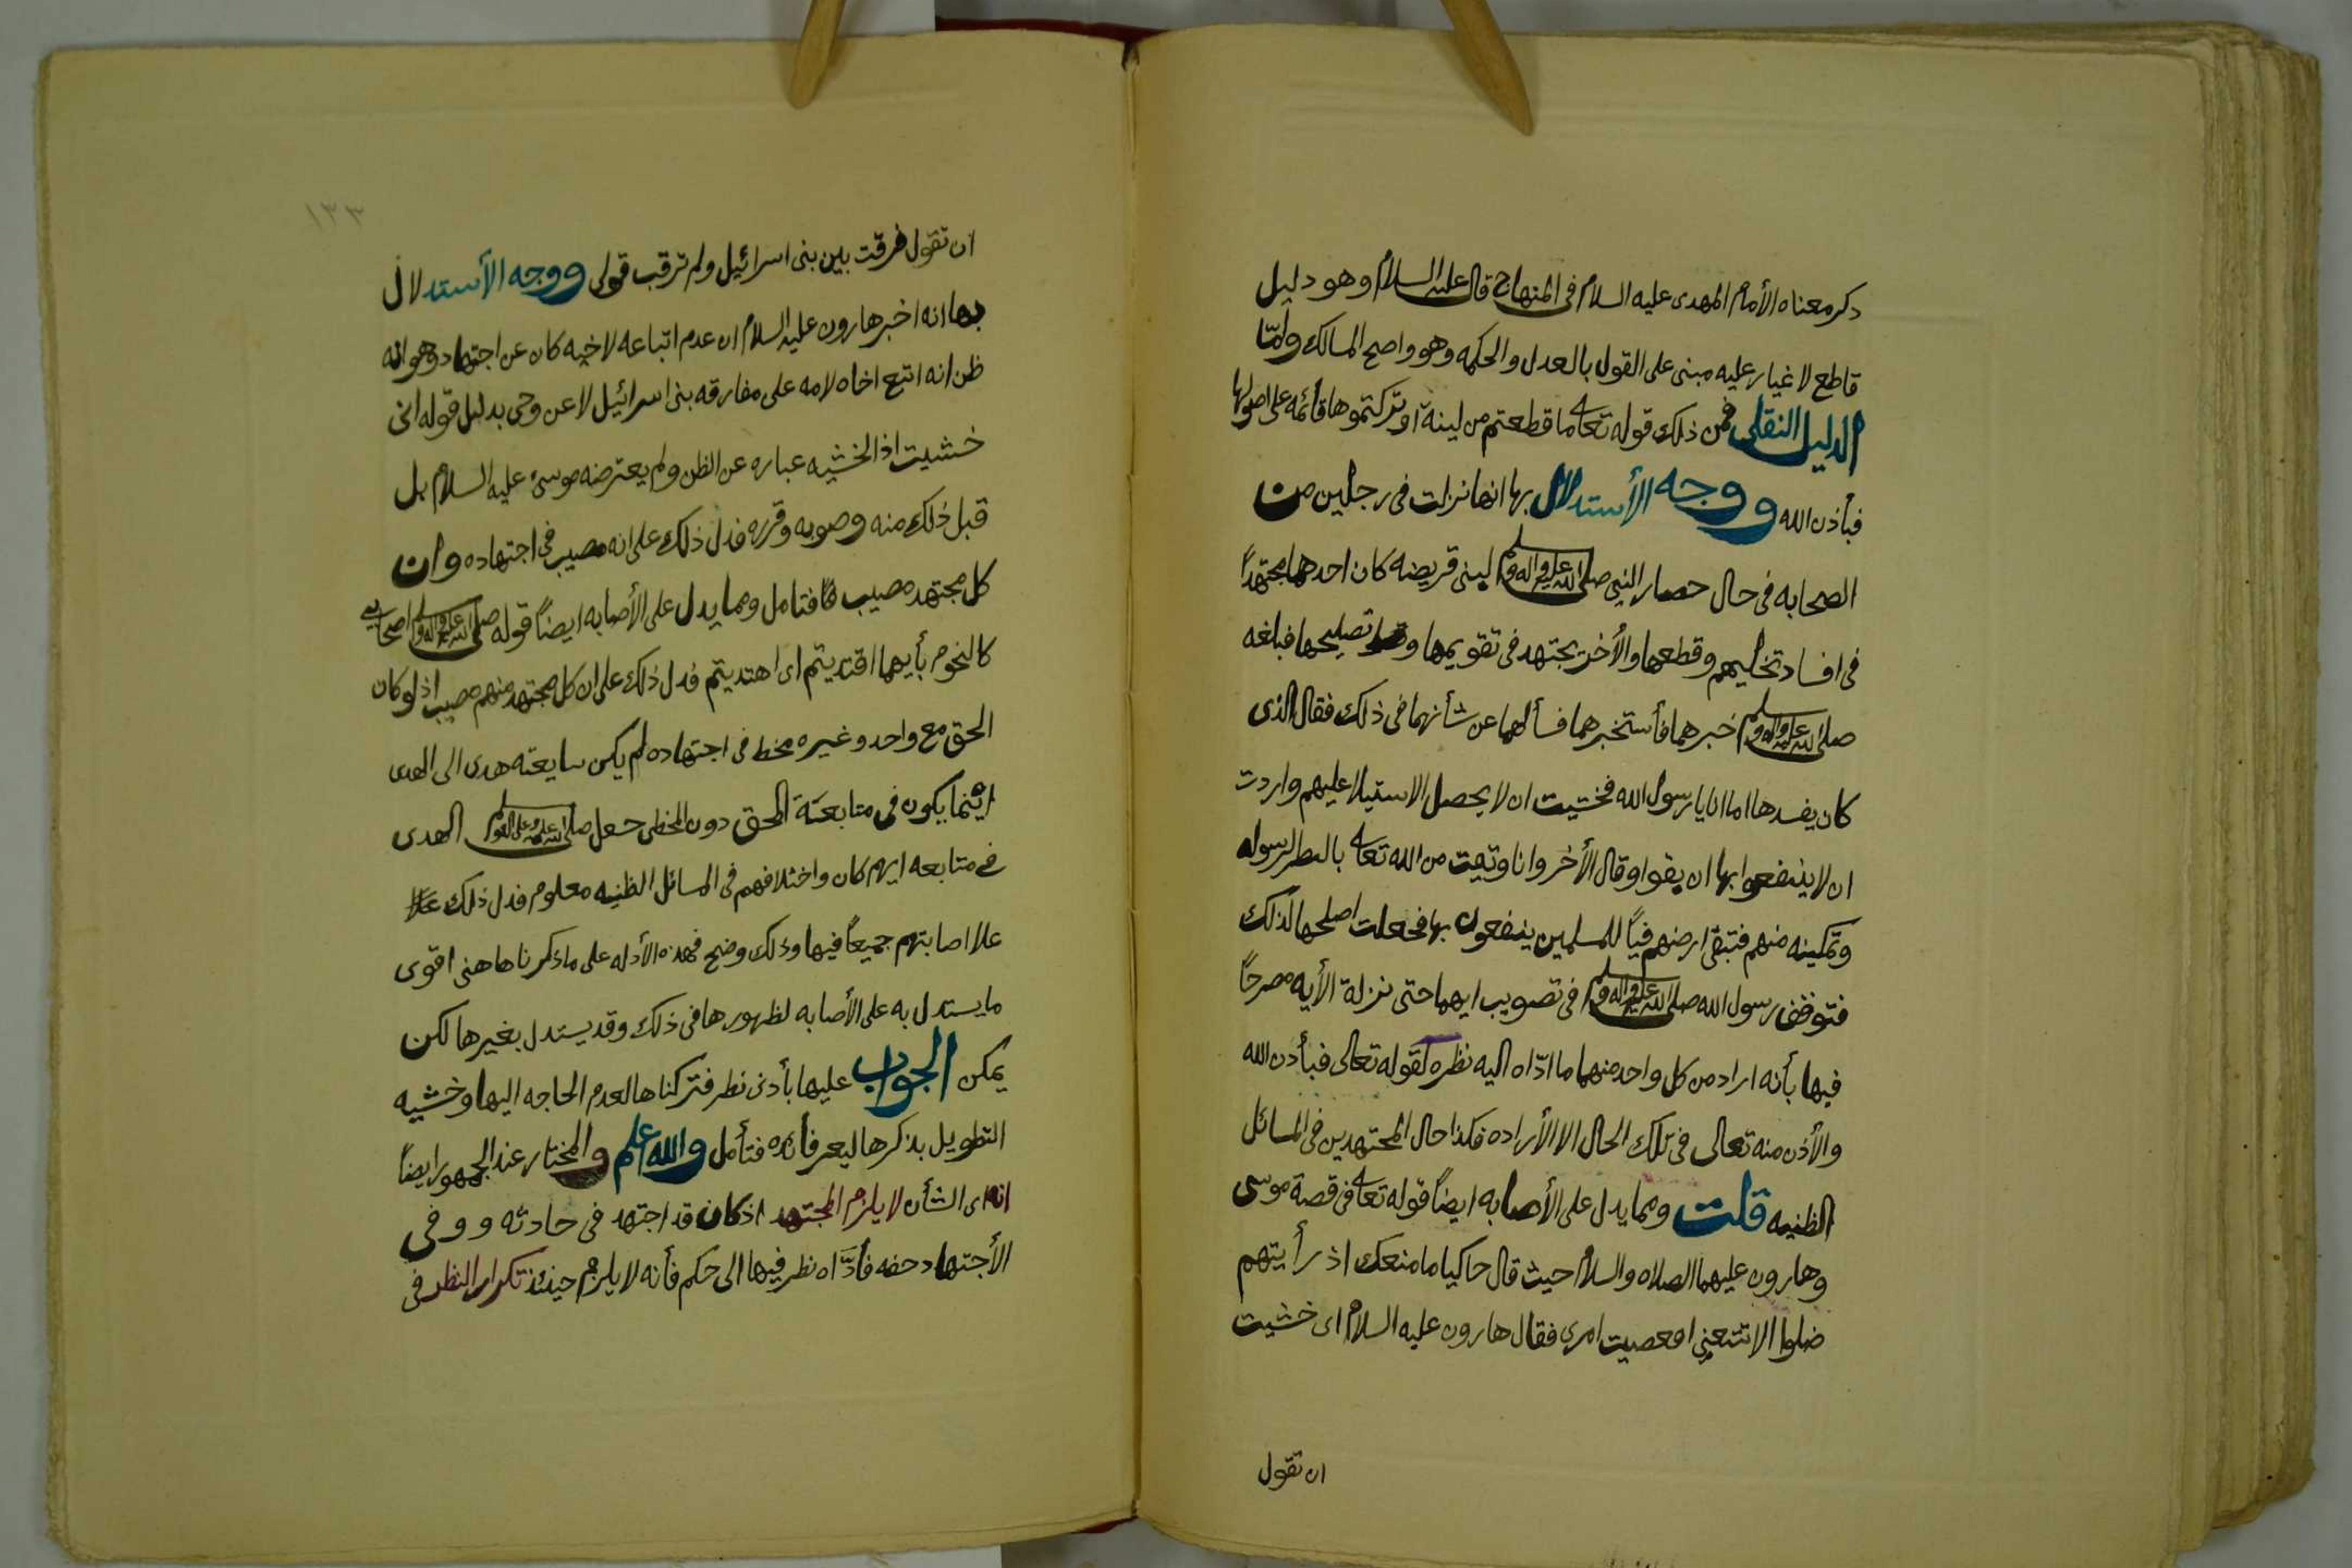 ذكر معناه الأمام المهدى عليه السلام فى المنهاج قال عليه السلام وهو دليل
قاطع لا غبار عليه مبنى على القول بالعدل والحكمه وهو واضح المسالك وأمّا
الدليل النقلى فمن ذلك قوله تعا ما قطعتم من لينة او تركتموها قائمه على اصولها
فبأذن الله ووجه الأستدلال بها انها نزلت فى رجلين من
الصحابه فى حال حصار النبى صلى الله عليه واله وسلم لبنى قريضه كان احدهما مجتهداً
فى افساد نخليهم وقطعها والأخر يجتهد فى تقويمها وتصليحها فبلغه
صلى الله عليه واله وسلم خبرهما فأستخبرهما فسألهما عن شأنهما فى ذلك فقال الذى
كان يفسدها اما انا يا رسول الله فخشيت ان لا يحصل الاستيلا عليهم واردت
ان لا ينتفعوا بها ان بقوا وقال الأخر وانا وثقت من الله تعا بالنصر لرسوله
وتمكينه منهم فتبقى ارضهم فيأً للمسلمين ينتفعون بها فجعلت اصلحها لذلك
فتوقف رسول الله صلى الله عليه واله وسلم فى تصويب ايهما حتى نزلة الأيه مصرحاً
فيها بأنه اراد من كل واحد منهما ما ادّاه اليه نظره لقوله تعالى فبأذن الله
والأذن منه تعالى فى تلك الحال الا الأراده فكذا حال المجتهدين فى المسائل
الظنيه قلت ومما يدل على الأصابه ايضاً قوله تعا فى قصة موسى
وهارون عليهما الصلاه والسلام حيث قال حاكيا ما منعك اذ رأيتهم
ضلوا الا تتبعنى افعصيت امرى فقال هارون عليه السلام اى خشيت
ان تقول
١٣٣
ان تقول فرقت بين بنى اسرائيل ولم ترقب قولى ووجه الأستدلال
بها انه اخبر هارون عليه السلام ان عدم اتباعه لاخيه كان عن اجتهاد وهو انه
ظن انه اتبع اخاه لامه على مفارقه بنى اسرائيل لا عن وحى بدليل قوله انى
خشيت اذ الخشيه عباره عن الظن ولم يعترضه موسى عليه السلام بل
قبل ذلك منه وصوبه وقرره فدل ذلك على انه مصيب فى اجتهاده وان
كل مجتهد مصيب فتامل ومما يدل على الأصابه ايضاً قوله صلى الله عليه واله وسلم اصحابى
كالنجوم بأيهما اقتديتم اى اهتديتم فدل ذلك على ان كل مجتهد منهم مصيب اذ لو كان
الحق مع واحد وغيره مخط فى اجتهاده لم يكن متابعته هدى الى الهدى
انما يكون فى متابعة المحق دون المخطى جعل صلى الله عليه وعلى اله وسلم الهدى
فى متابعه ايهم كان واختلافهم فى المسائل الظنيه معلوم فدل ذلك
علا اصابتهم جميعاً فيها وذلك وضح فهذه الأدله على ما ذكرنا هاهنى اقوى
ما يستدل به على الأصابه لظهورها فى ذلك وقد يستدل بغيرها لكن
يمكن الجواب عليها بأدنى نظر فتركناها لعدم الحاجه اليها وخشيه
التطويل بذكرها لغير فائده فتأمل والله اعلم والمختار عند الجمهور ايضاً
انه اى الشأن لا يلزم المجتهد اذ كان قد اجتهد فى حادثه ووفى
الأجتهاد حقه فأدَّاه نظر فيها الى حكم فأنه لا يلزم حينئذ تكرار النظر فى